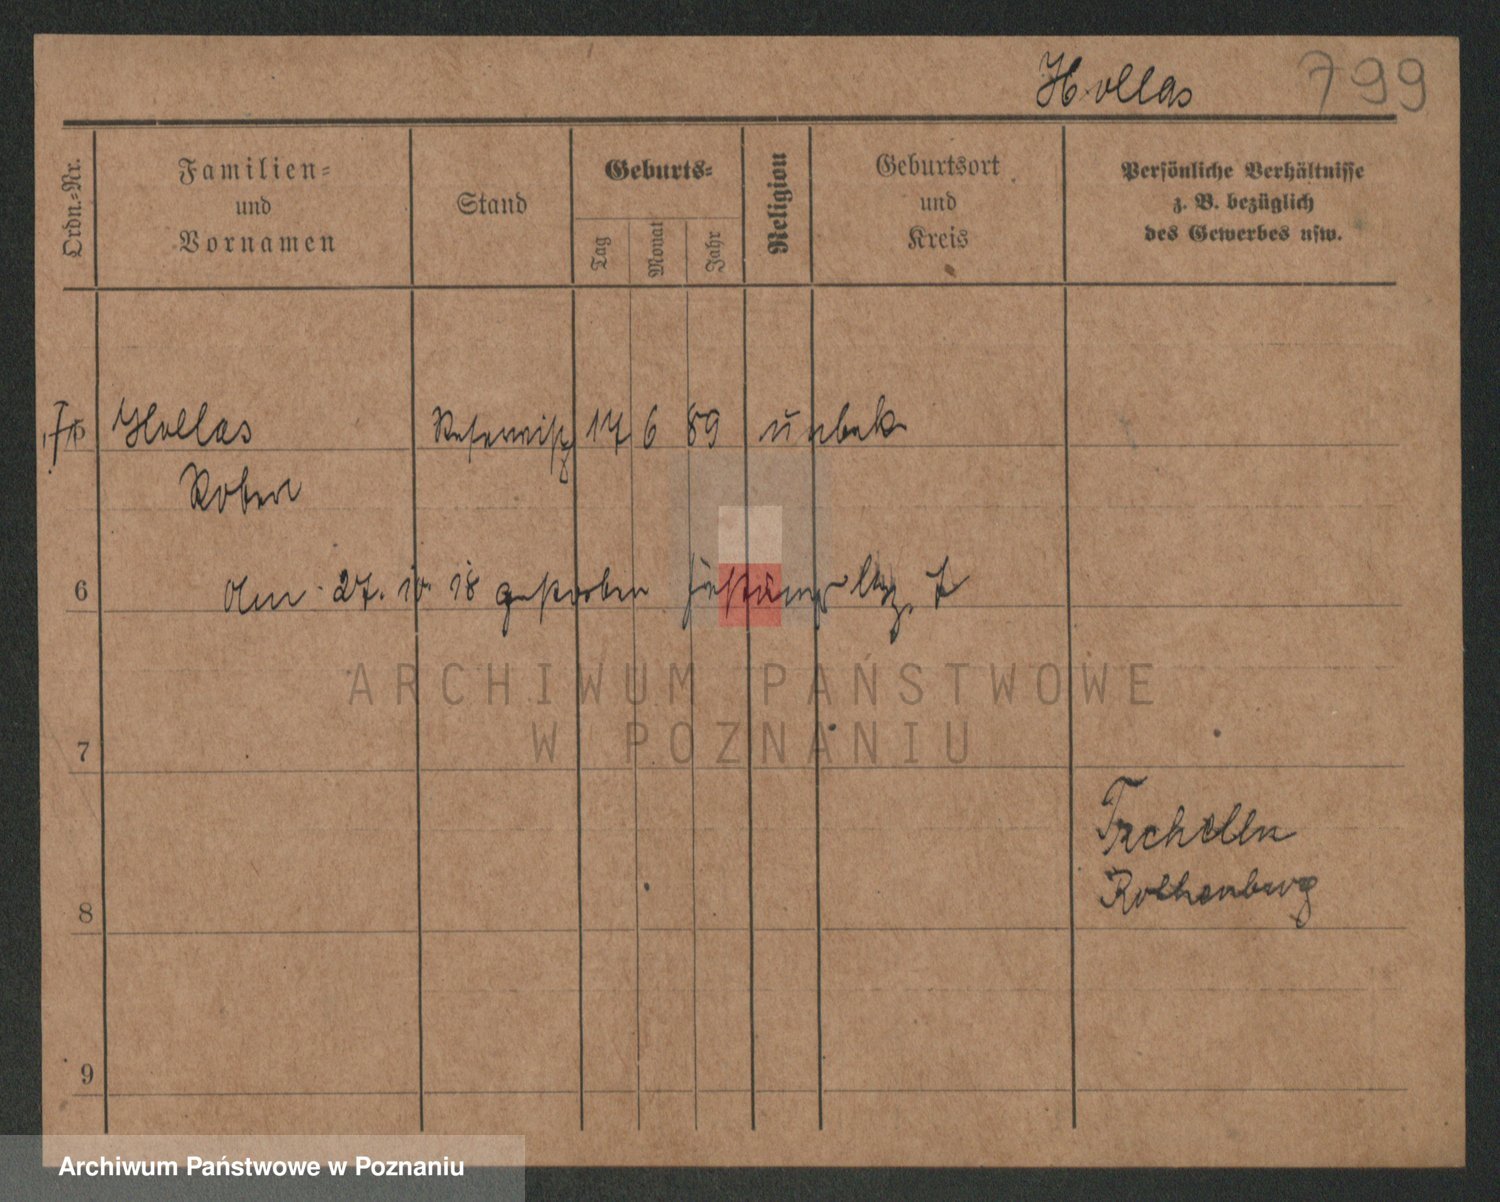 Hollas 799
Ordn.-Nr.
Familien-
und
Vornamen
Stand
Geburts-
Tag
Monat
Jahr
Religion
Geburtsort
und
Kreis
Persönliche Verhältnisse
z. B. bezüglich
des Gewerbes usw.
Hollas Reservist 17 6 89 unbek
Robert
6 Am 27. 10. 18 gestorben Festungs Laz. 7
ARCHIWUM PAŃSTWOWE
W POZNANIU
7
Rothenburg
8
9
Archiwum Państwowe w Poznaniu